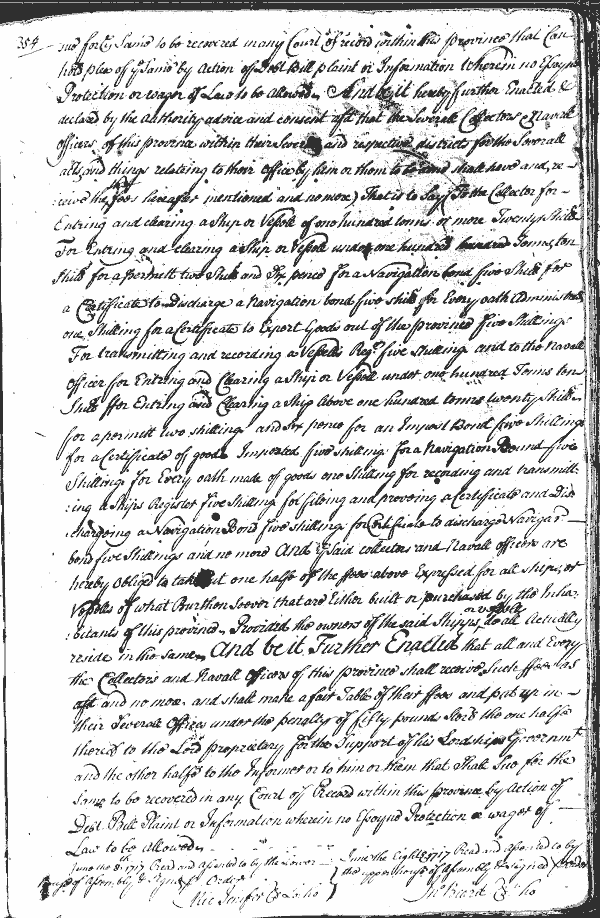 354
sue for ye Same to be recovered in any Court of record within this province that Can
hold plea of ye Same by Action of Debt Bill plaint or Information wherein no Essoyne
Protection or wager of Law to be Allowed. And be it hereby further Enacted &
declared by the Authority advice and consent afd that the Severall Collectors & Navall
officers of this province within their Severall and respective districts for the Severall
acts and things relating to their office by him or them to be done shall have and re-
ceive the ffees hereafter mentioned and no more) That is to Say) To the Collector for -
Entring and clearing a Ship or Vessell of one hundred tonns or more Twenty Shills
For Entring and clearing a Ship or Vessell under one hundred hundred Tonns ten
Shills for a permitt two Shills and Six pence for a Navigation bond five Shills for
a Certificate to discharge a Navigation bond five shills for Every oath Administred
one Shilling for a Certificate to Export Goods out of the province five Shillings
For transmitting and recording a Vessells Regr five shillings and to the Navall
officer for Entring and Clearing a Ship or Vessell under one hundred Tonns ten
Shills ffor Entring and Clearing a Ship above one hundred tonns twenty Shills
for a permitt two shillings and six pence for an Import Bond five Shillings
for a Certificate of goods Imported five shillings for a Navigation Bound five
Shillings for Every oath made of goods one Shilling for recording and transmitt-
:ing a Ships Register five Shillings for fileing and proveing a Certificate and Dis
:chargeing a Navigation Bond five shillings for Certificate to discharge Navigat
bond five Shillings and no more And ye Said collectors and Navall officers are
hereby obliged to take but one halfe of the ffees above Expressed for all ships or
Vessells of what Burthen soever that are Either built or purchased by the Inha-
:bitants of this province. Provided the owners of the said Shipps or vessells do all Actually
reside in the same. And be it Further Enacted that all and Every
the Collectors and Navall Officers of this province shall receive Such ffees as
afd and no more and shall make a fair Table of their ffees and put up in -
their Severall Offices under the penalty of fifty pound Sterl the one halfe
thereof to the Lord proprietary for the Support of his Lordships Governmt
and the other halfe to the Informer or to him or them that Shall Sue for the
Same to be recovered in any Court of Record within this province by Action of
Debt Bill Plaint or Information wherein no Essoynd Protection or wager of
Law to be allowed.
June the 8th 1717 Read and assented to by the Lower
house of Assembly & Signed pr Order
June the Eight 1717 Read and assented to by
the upper house of Assembly & Signed pr order